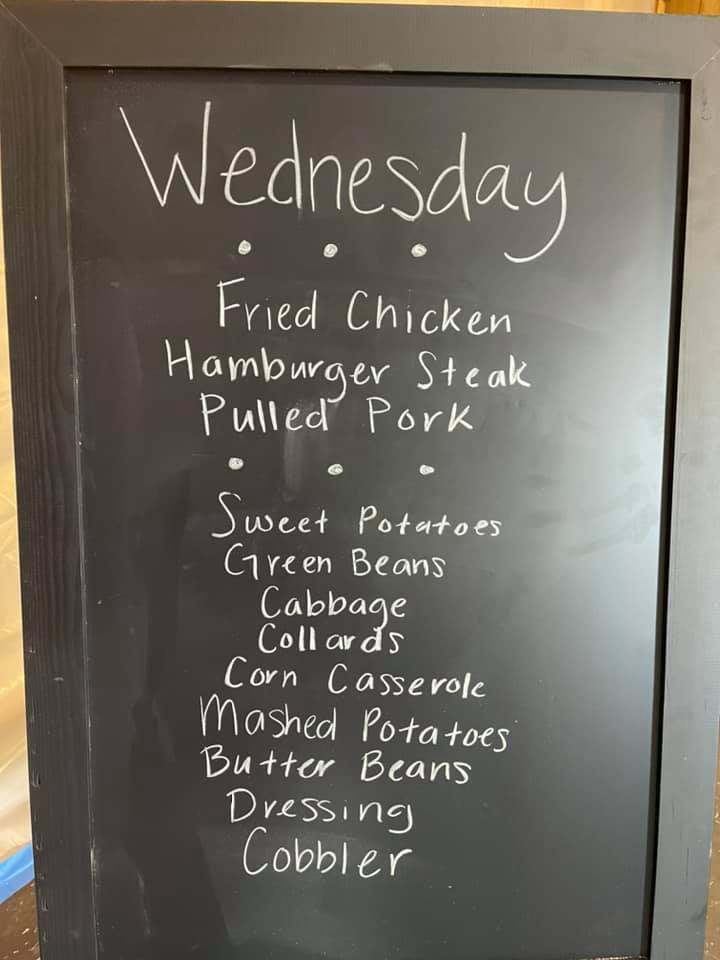 Wednesday
Fried Chicken
Hamburger Steak
Pulled Pork
Sweet Potatoes
Green Beans
Cabbage
Collards
Corn Casserole
Mashed Potatoes
Butter Beans
Dressing
Cobbler